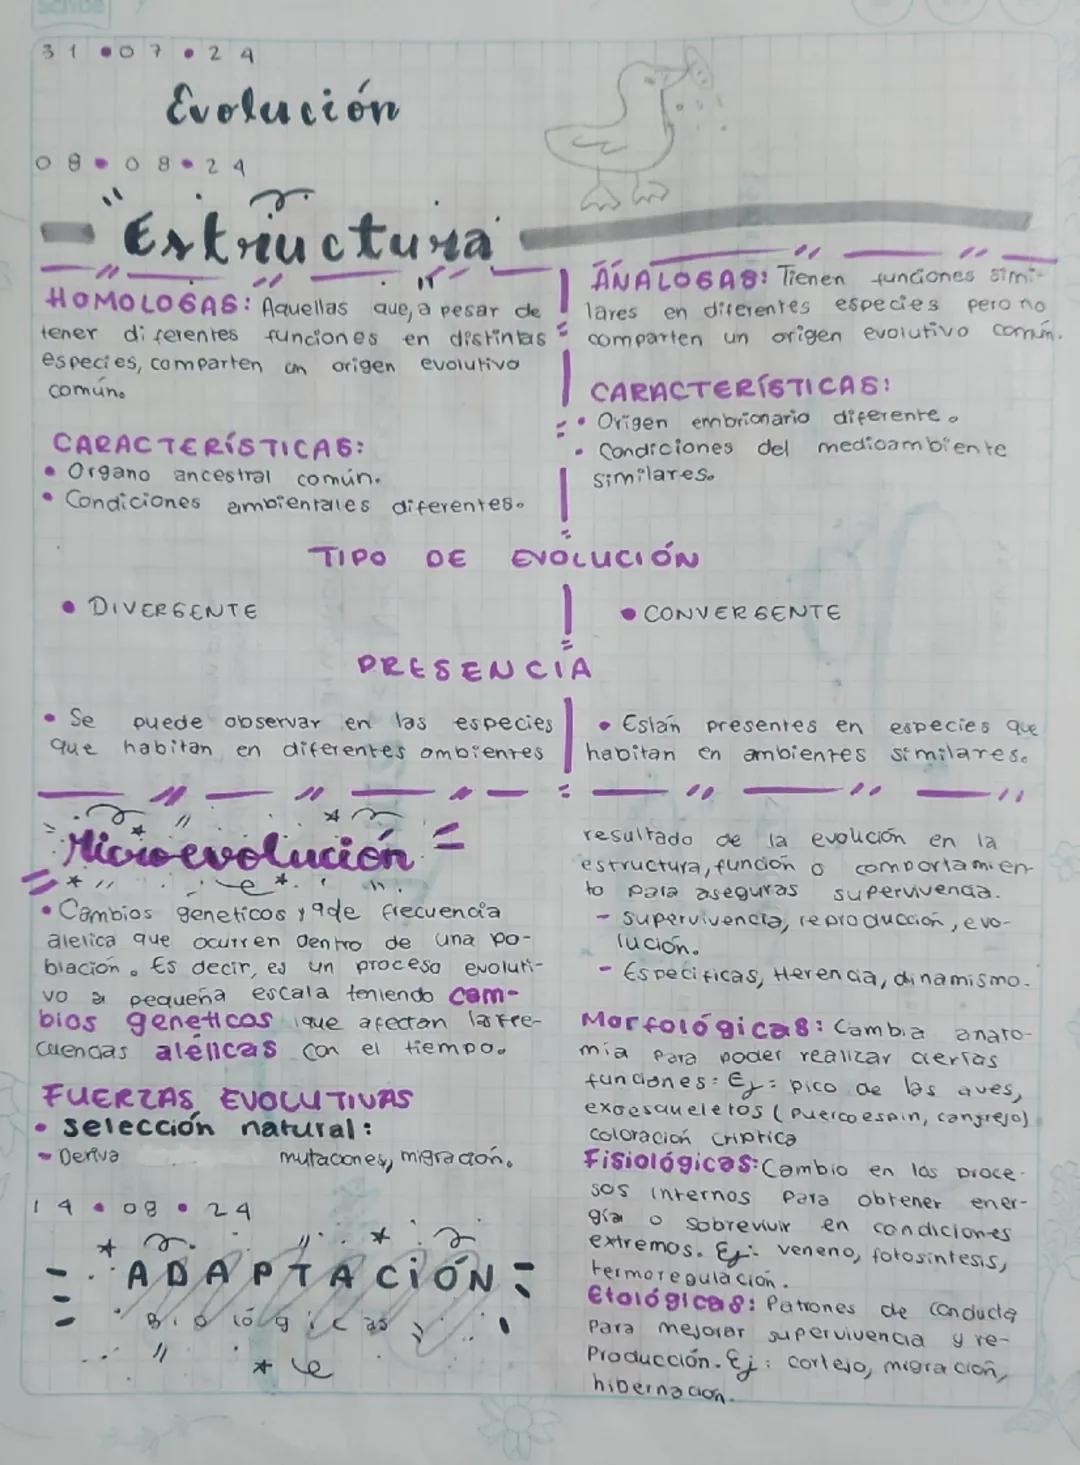 31•07•24
Evolución
08•08•24
"Estructura"
HOMOLOGAS: Aquellas que, a pesar de
tener diferentes funciones en distintas
especies, comparten un origen evolutivo
común.
CARACTERÍSTICAS:
• Organo ancestral común.
• Condiciones ambientales diferentes.
ANALOGAS: Tienen funciones simi-
lares en diferentes especies pero no
comparten un origen evolutivo común.
CARACTERÍSTICAS:
• Origen embrionario diferente.
• Condiciones del medioambiente
similares.
TIPO DE EVOLUCIÓN
• DIVERGENTE
• CONVERGENTE
PRESENCIA
• Se puede observar en las especies
que habitan en diferentes ambientes
• Están presentes en especies que
habitan en ambientes similares.
Microevolución
• Cambios geneticos y de frecuencia
alelica que ocurren dentro de una po-
blación. Es decir, es un proceso evoluti-
vo a pequeña escala teniendo cam-
bios geneticos que afectan las fre-
cuencias alélicas con el tiempo.
FUERZAS EVOLUTIVAS
• selección natural:
- Deriva mutaciones, migración.
14•08•24
ADAPTACIÓN
Biológicas
resultado de la evolución en la
estructura, función o comportamien-
to para aseguras supervivencia.
- supervivencia, reproducción, evo-
lución.
- Especificas, Herencia, dinamismo.
Morfológicas: Cambia anato-
mia para poder realizar ciertas
funciones: Ej: pico de las aves,
exoesqueletos (puercoespin, cangrejo)
coloración criptica
Fisiológicas: Cambio en los proce-
sos internos para obtener ener-
gía o sobrevivir en condiciones
extremos. Ej: veneno, fotosintesis,
termoregulación.
Etológicas: Patrones de conducta
Para mejorar supervivencia y re-
Producción. Ej: cortejo, migración,
hibernación.